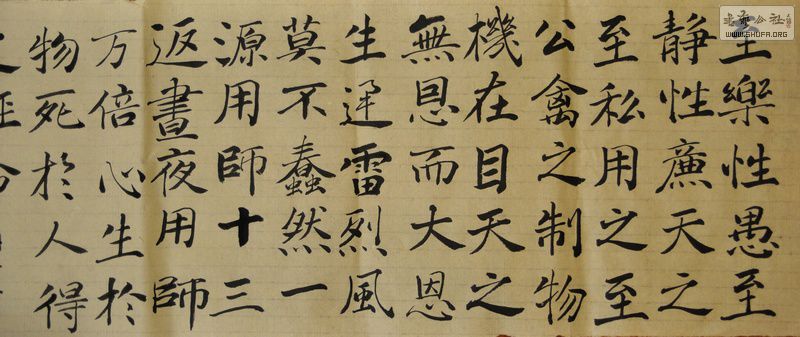 至樂性愚至
静性廉天之
至私用之至
公禽之制物
機在目天之
無恩而大恩
生迅雷烈風
莫不蠢然一
源用師十三
返晝夜用師
万倍心生於
物死於人得
書藝公社
WWW.SHUFA.ORG